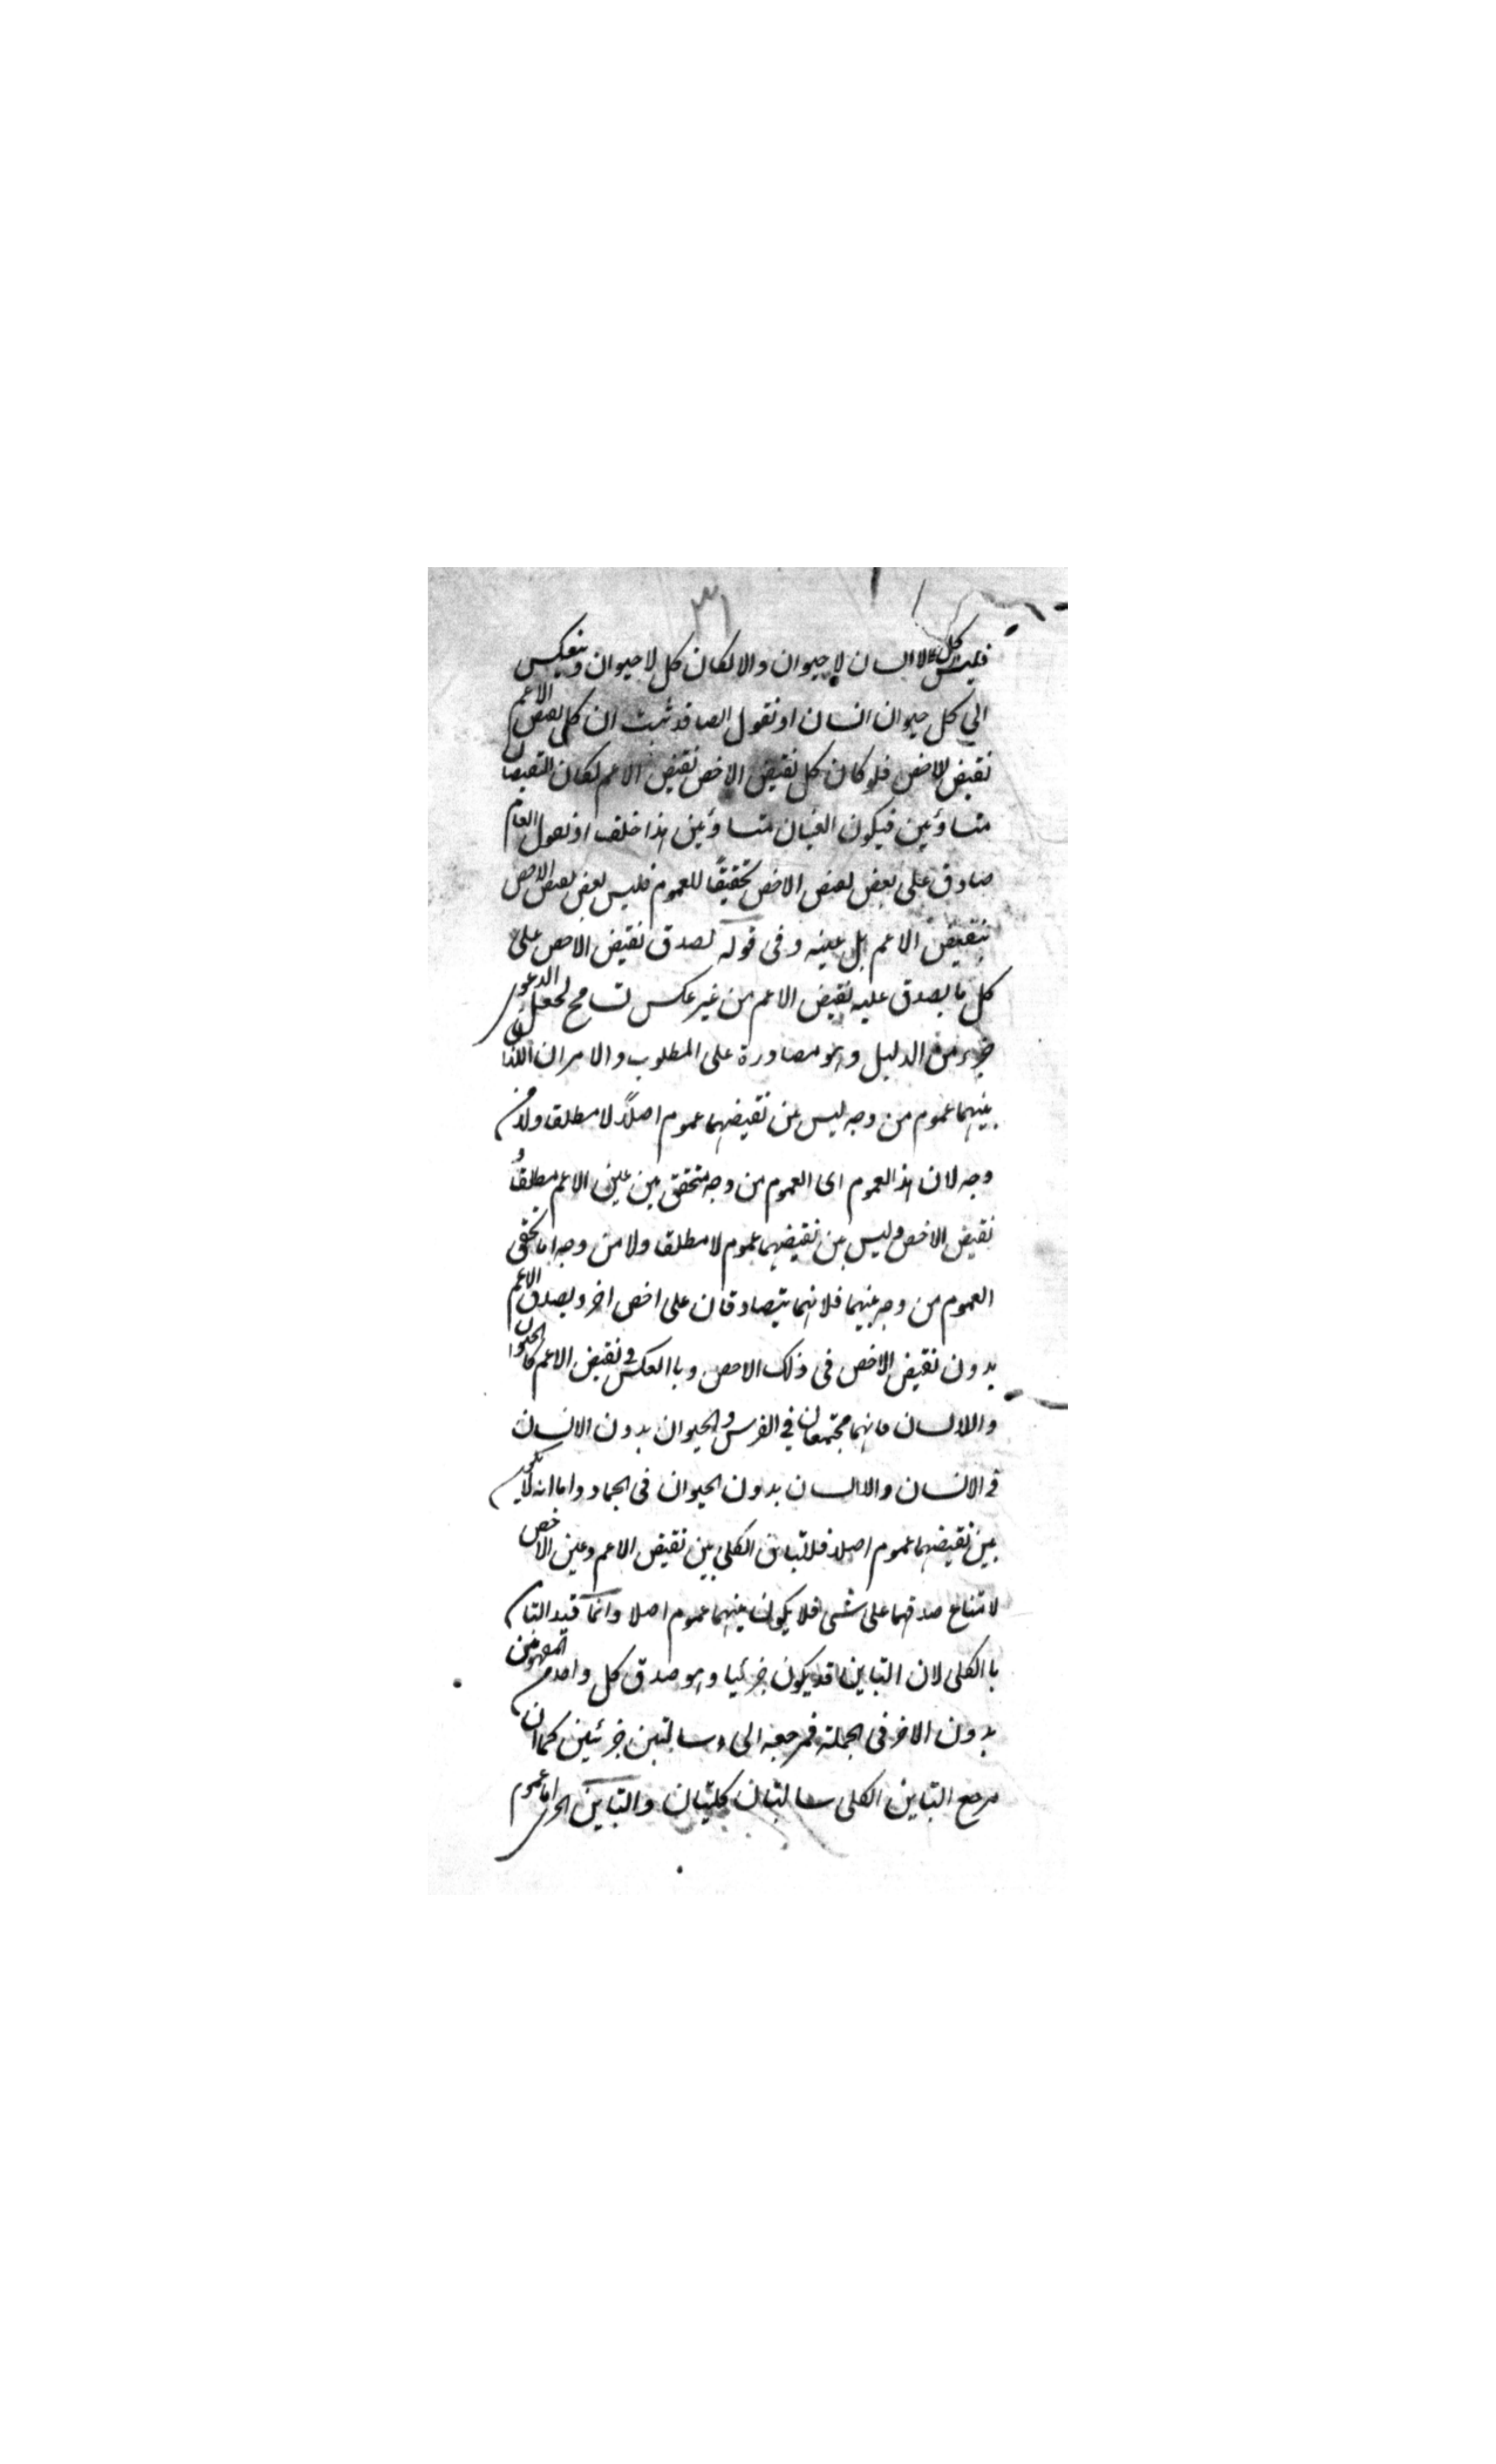 ٣١
فليس كل لا انسان لا حيوان والا لكان كل لا حيوان وينعكس
الي كل حيوان انسان او نقول ايضا قد ثبت ان كل نقيض الاعم
نقيض الاخص فلو كان كل نقيض الاخص نقيض الاعم لكان النقيضان
متساوئين فيكون العينان متساوئين هذا خلف او نقول العام
صادق على بعض نقيض الاخص تحقيقًا للعموم فليس بعض نقيض الاخص
نقيض الاعم بل عينه وفى قوله لصدق نقيض الاخص على
كل ما يصدق عليه نقيض الاعم من غير عكس تسامح لجعل الدعوى
جزء من الدليل وهو مصادرة على المطلوب والامران اللذان
بينهما عموم من وجه ليس بين نقيضهما عموم اصلاً لا مطلقا ولا من
وجه لان هذا العموم اى العموم من وجه متحقق بين عين الاعم مطلقا و
نقيض الاخص وليس بين نقيضهما عموم لا مطلقا ولا من وجه اما تحقق
العموم من وجه بينهما فلانهما يتصادقان على اخص اخر ويصدق الاعم
بدون نقيض الاخص فى ذلك الاخص وباالعكس فى نقيض الاعم كالحيوان
واللاانسان فانهما مجتمعان في الفرس والحيوان بدون الانسان
فى الانسان واللاانسان بدون الحيوان فى الجماد واما انه لا يكون
بين نقيضهما عموم اصلا فللتباين الكلى بين نقيض الاعم وعين الاخص
لامتناع صدقهما على شىء فلا يكون بينهما عموم اصلا وانما قيد التباين
باالكلى لان التباين قد يكون جزئيا وهو صدق كل واحد من المفهومين
بدون الاخر فى الجملة فمرجعه الى سالبتين جزئيتين كما ان
مرجع التباين الكلى سالبتان كليتان والتباين الجزئى اما عموم